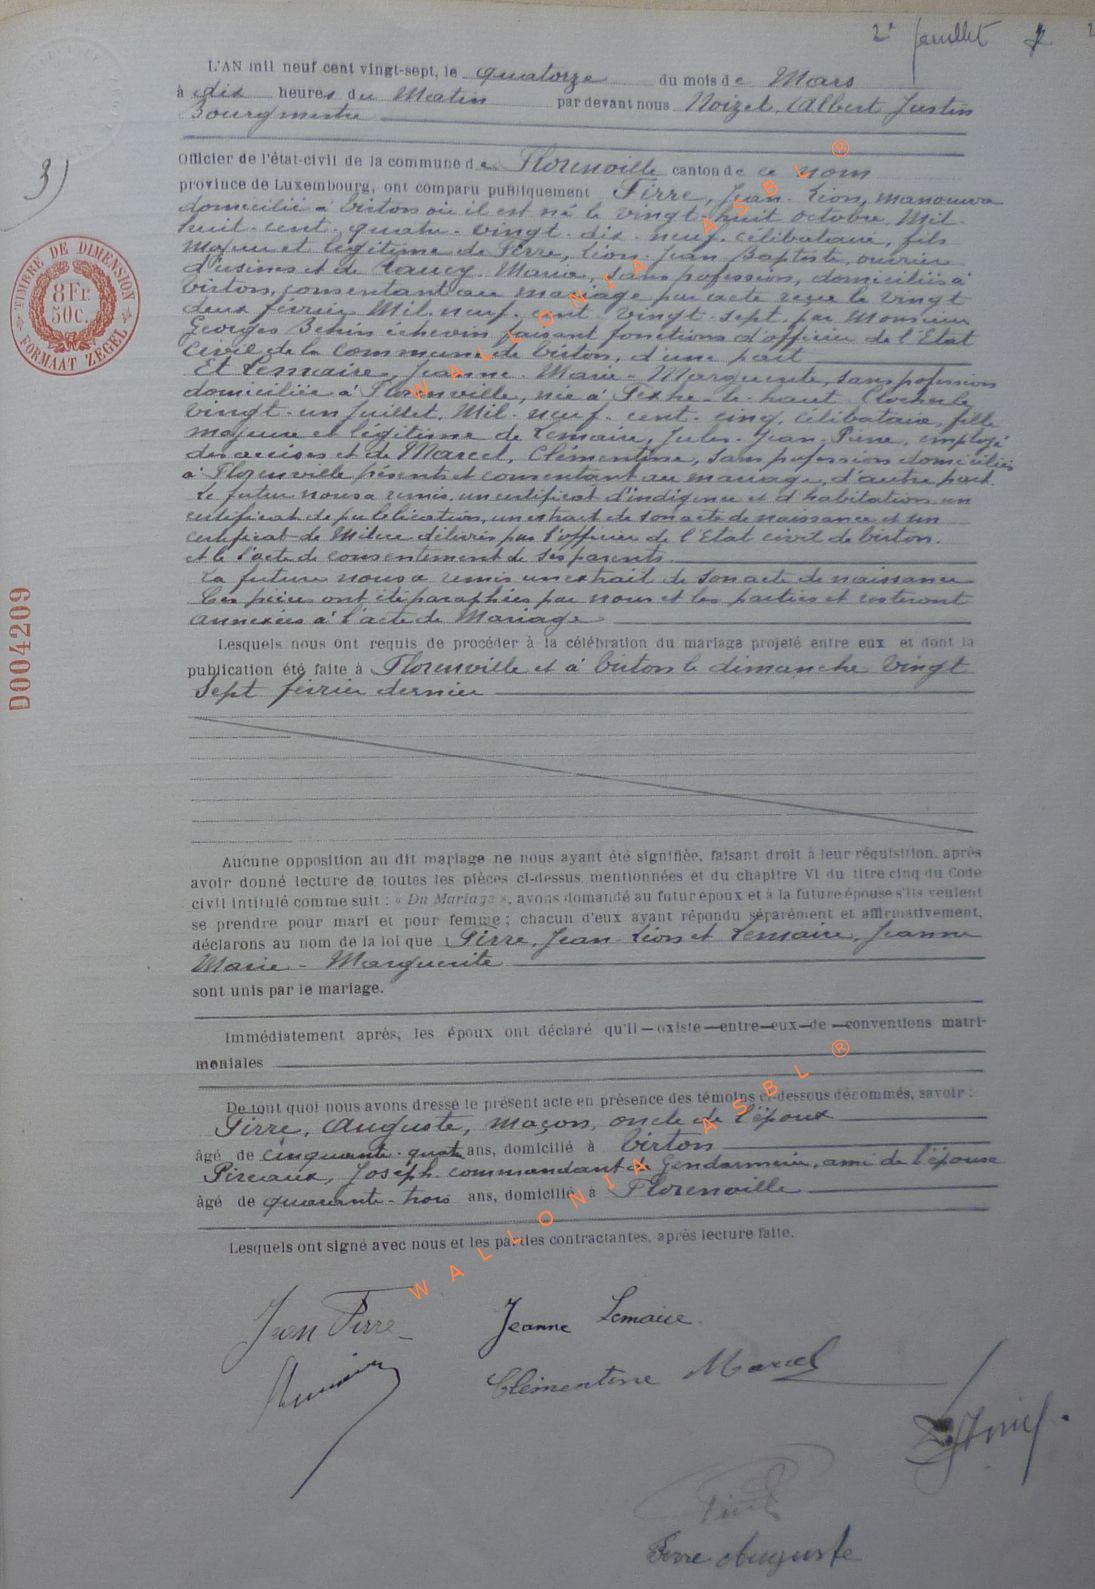 2e feuillet
3)
L'AN mil neuf cent vingt-sept, le quatorze du mois de Mars
à dix heures du Matin par devant nous Noizet, Albert Justin
Bourgmestre
Officier de l'état-civil de la commune de Florenville canton de ce nom
province de Luxembourg, ont comparu publiquement Pirre, Jean-Léon, manoeuvre
domicilié à Virton où il est né le vingt-huit octobre Mil
huit-cent-quatre-vingt-dix-neuf, célibataire, fils
majeur et légitime de Pirre, Léon-Jean Baptiste, ouvrier
d'usines et de Marie, sans profession, domiciliés à
Virton, consentant au mariage par acte reçu le vingt
deux février Mil-neuf-cent-vingt-sept par Monsieur
Georges échevin faisant fonctions d'officier de l'Etat
civil de la commune de Virton, d'une part
Et Lemaire, Jeanne-Marie-Marguerite, sans profession
domiciliée à Florenville, née à le
vingt-un Juillet, Mil-neuf-cent-cinq, célibataire, fille
majeure et légitime de Lemaire, Jules-Jean-Pierre, employé
des accises et de Marcel, Clémentine, sans profession domiciliés
à Florenville présents et consentant au mariage, d'autre part.
Le futur nous a remis un certificat d'indigence et d'habitation un
certificat de publication, un extrait de son acte de naissance et un
certificat de Milice délivrés par l'officier de l'Etat civil de Virton.
et de l'acte de consentement de ses parents.
La future nous a remis un extrait de son acte de naissance
Ces pièces ont été paraphées par nous et les parties et resteront
annexées à l'acte de Mariage
Lesquels nous ont requis de procéder à la célébration du mariage projeté entre eux et dont la
publication été faite à Florenville et à Virton le dimanche vingt
sept février dernier
Aucune opposition au dit mariage ne nous ayant été signifiée, faisant droit à leur réquisition. après
avoir donné lecture de toutes les pièces ci-dessus mentionnées et du chapitre VI du titre cinq du Code
civil intitulé comme suit : « Du Mariage », avons demandé au futur époux et à la future épouse s'ils veulent
se prendre pour mari et pour femme ; chacun d'eux ayant répondu séparément et affirmativement,
déclarons au nom de la loi que Pirre, Jean-Léon et Lemaire, Jeanne
Marie-Marguerite
sont unis par le mariage.
Immédiatement après, les époux ont déclaré qu'il existe entre eux de conventions matri-
moniales
De tout quoi nous avons dressé le présent acte en présence des témoins ci-dessous dénommés, savoir :
Pirre, Auguste, maçon, oncle de l'époux
âgé de cinquante-quatre ans, domicilié à Virton
Joseph commandant de Gendarmerie, ami de l'épouse
âgé de quarante-trois ans, domicilié à Florenville
Lesquels ont signé avec nous et les parties contractantes, après lecture faite.
Jean Pirre
Jeanne Lemaire
Clémentine Marcel
Pirre Auguste
TIMBRE DE DIMENSION
8 Fr.
50c.
FORMAAT ZEGEL
D004209
WALLONIA ASBL ®
WALLONIA ASBL ®